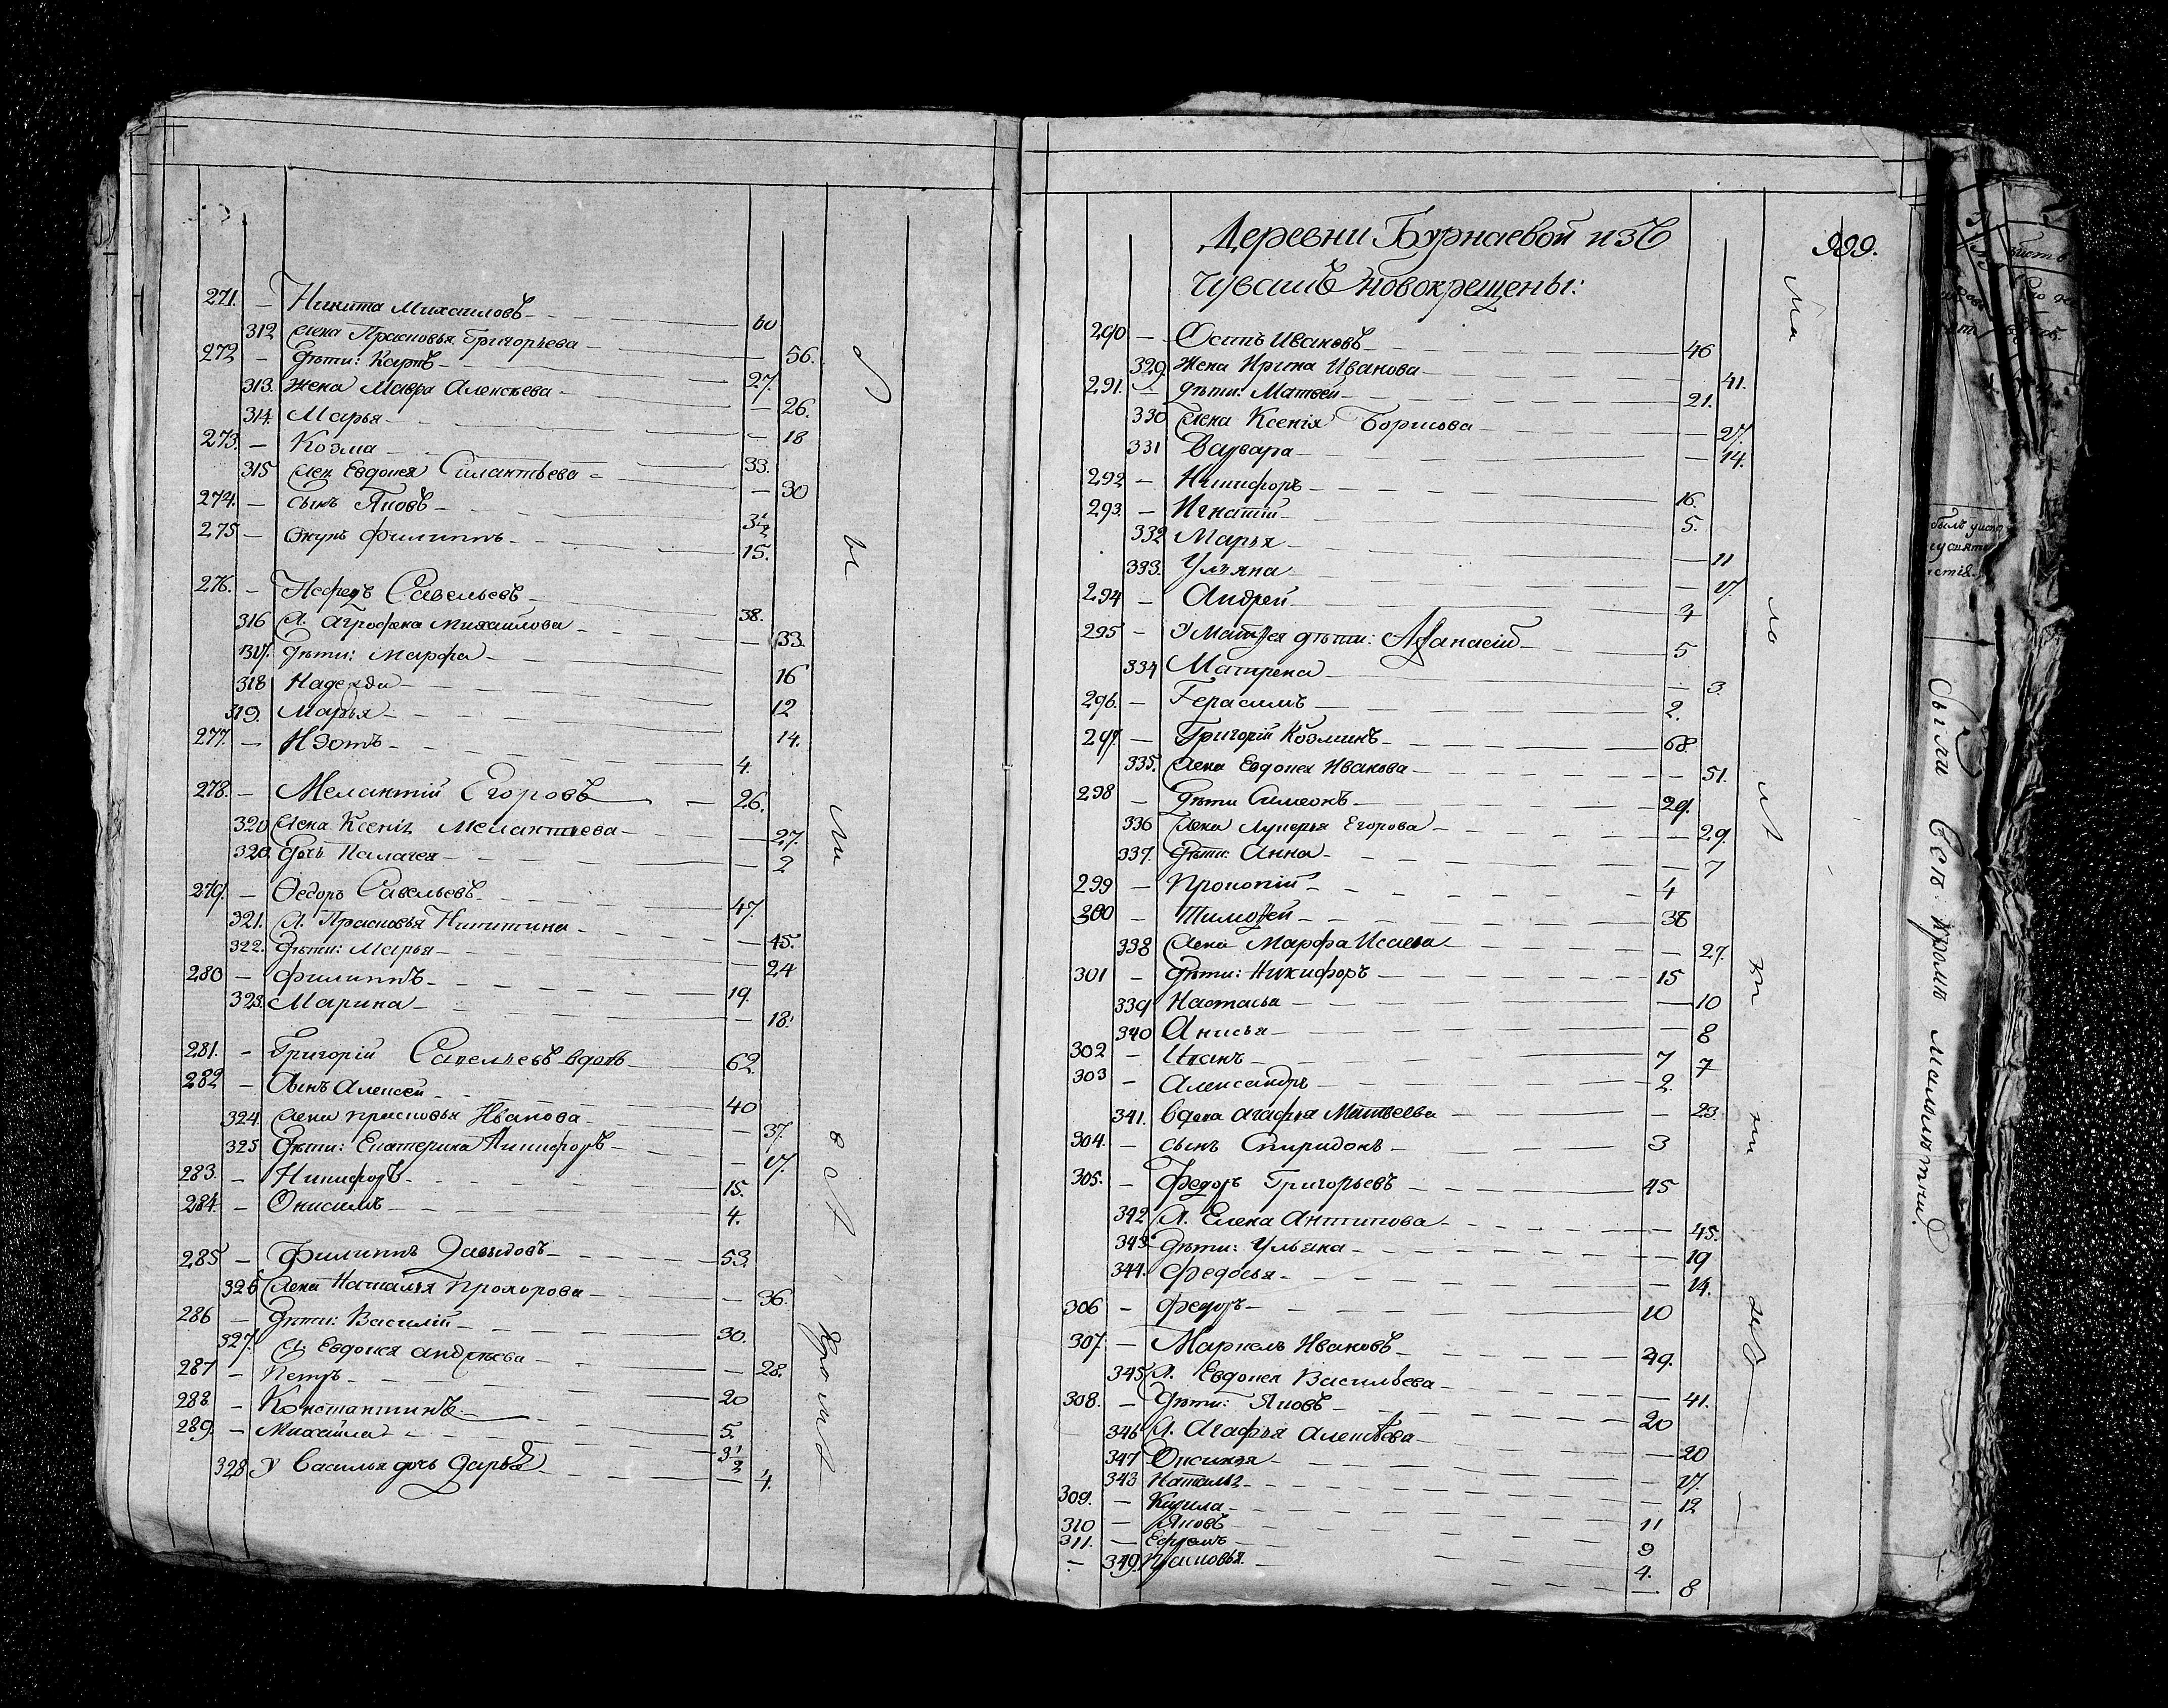 271. — Никита Михаиловъ — 60
312 жена Прасковья Григорьева — 56.
272 — дѣти: Карпъ — 27.
313. жена Мавра Алексѣева — 26.
314. Марья — 18
273. — Козма — 33.
315 жен. Евдокея Силантьева — 30
274. — сынъ Яковъ — 3 1/2
275. — Филиппъ — 15.
276. — Савельевъ — 38.
316 ж. Аграфена Михаилова — 33.
317. дѣти: Марфа — 16
318 Надежда — 12
319. Марья — 14.
277. — Изотъ — 4.
278. — Мелантий Егоровъ — 26.
320 жена Ксения Мелантьева — 27.
320. дочь Палагея — 2
279. — Ѳедоръ Савельевъ — 47.
321. ж. Прасковья Никитина — 45.
322. дѣти: Марья — 24
280 — Филиппъ — 19.
323. Марина — 18.
281. — Григорій Савельевъ вдовъ — 62.
282 — сынъ Алексей — 40
324. жена Прасковья Иванова — 37.
325 дѣти: Екатерина — 17.
283. — Никифоръ — 15.
284. — Онисимъ — 4.
285 — Филиппъ Давыдовъ — 53.
326 жена Наталья Прохорова — 36.
286 — дѣти: Василій — 30.
327. ж. Евдокея Андрѣева — 28.
287 — Петръ — 20
288. — Константинъ — 5.
289. — Михайла — 3 1/2
328 У Василья дочь Дарья — 4.
бы ли у ис. Кромѣ
999.
Деревни Бурнаевой изъ
чувашъ новокрещены:
290 — Осипъ Ивановъ — 46
329. жена Ирина Иванова — 41.
291. — дѣти: Матвей — 21.
330 жена Ксенія Борисова — 27.
331 Варвара — 14.
292 — Никифоръ — 16.
293. — Игнатій — 5.
332 Марья — 11
333. Ульяна — 17.
294 — Андрей — 4
295 — У Матвея дѣти: Афанасій — 5
334 Матрена — 3.
296. — Герасимъ — 2.
297. — Григорій Козминъ — 68.
335. жена Евдокея Иванова — 51.
298 — дѣти Симеонъ — 29.
336 жена Лукерья Егорова — 29.
337. дѣти: Анна — 7
299 — Прокопій — 4
300 — Тимоѳей — 38
338 жена Марфа Исаева — 27.
301 — дѣти: Никифоръ — 15
339 Настасья — 10
340 Анисья — 8
302 — Иванъ — 7 7
303 — Александръ — 2.
341. вдова Агафья Матвеева — 23.
304. — сынъ Спиридонъ — 3
305. — Федоръ Григорьевъ — 45
342 ж. Елена Антипова — 45.
343. дѣти: Ульяна — 19
344. Федосья — 14.
306 — Федоръ — 10
307. — Маркелъ Ивановъ — 49.
345 ж. Евдокея Васильева — 41.
308. — дѣти: Яковъ — 20
346 ж. Агафья Алексѣева — 20
347 Оксинья — 17.
343 Наталья — 12
309. — Кирила — 11
310 — Яковъ — 9
311. — Ефремъ — 4.
349. Прасковья — 8
Ма ло лѣ тни хъ
были Есть кромѣ малолѣтних